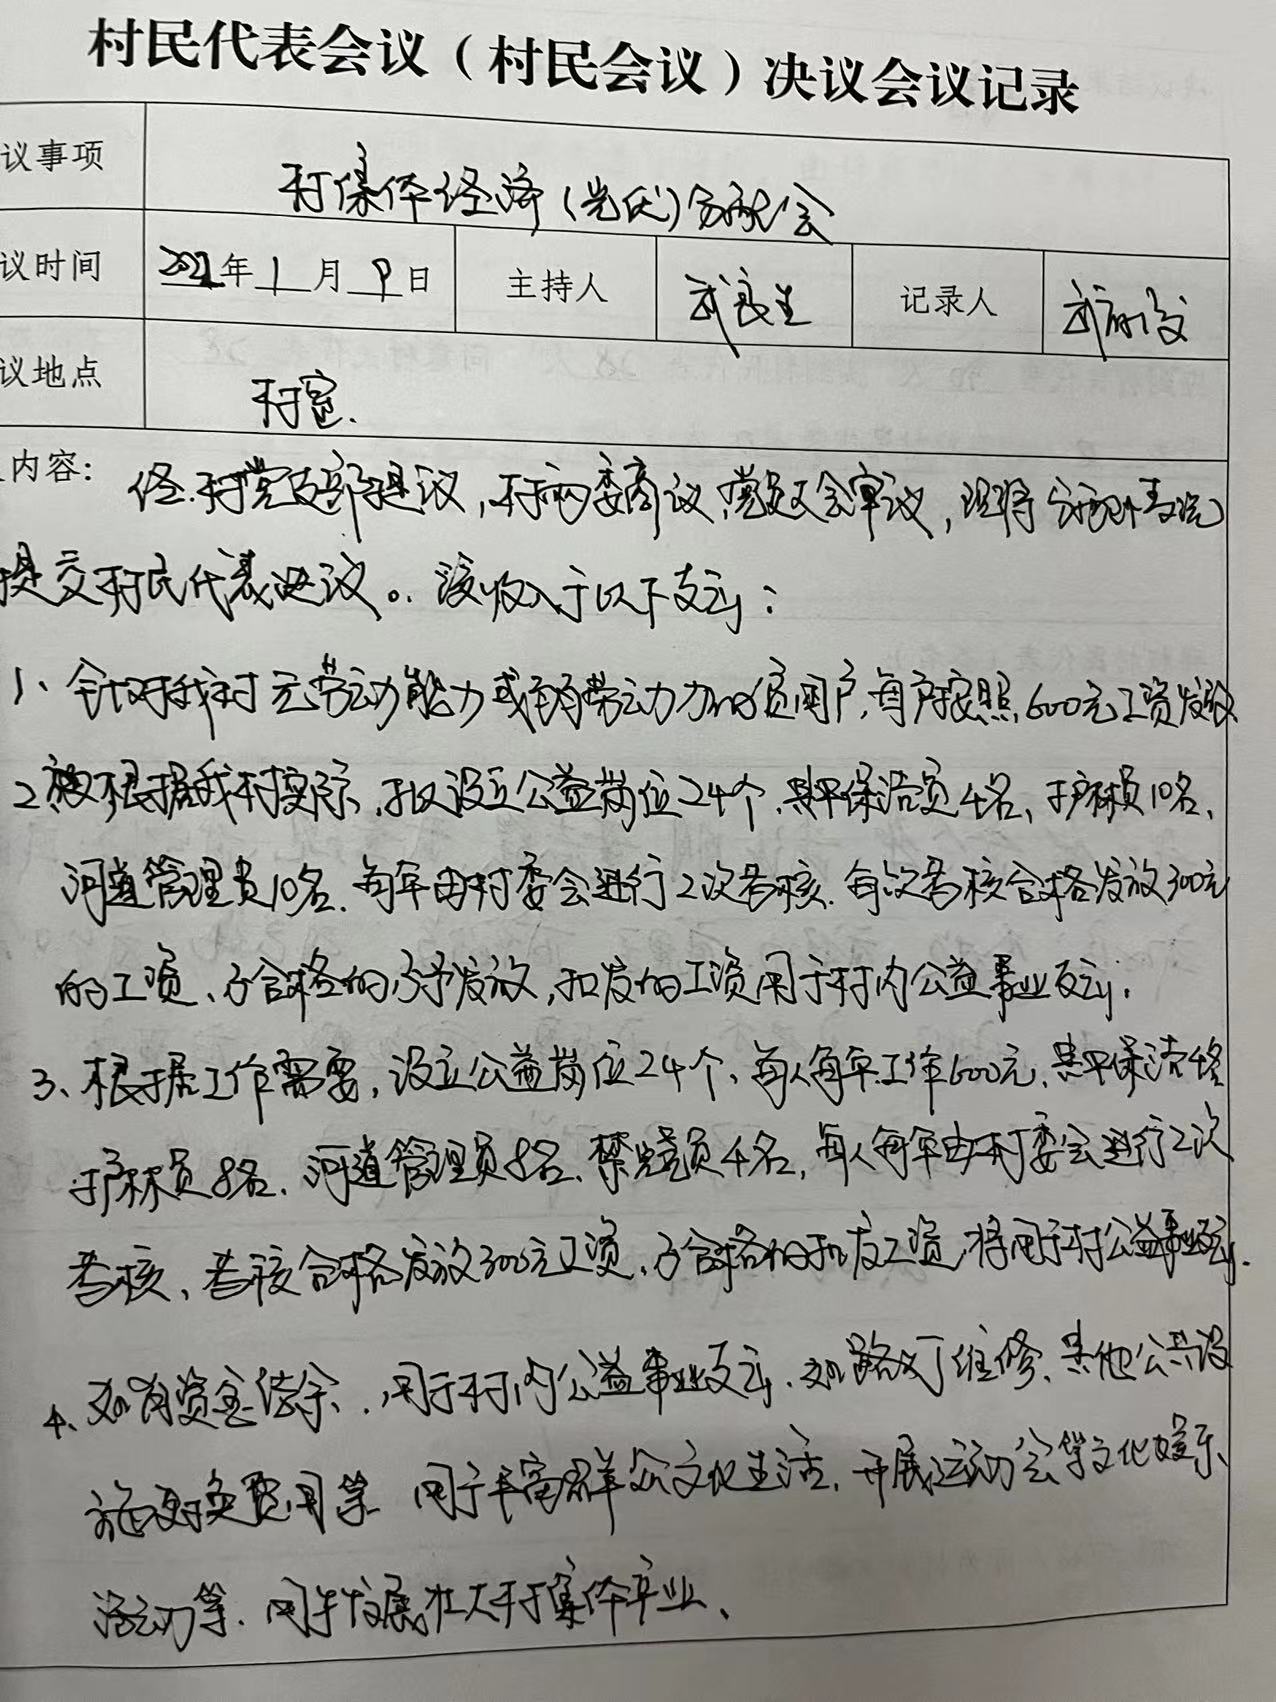 村民代表会议（村民会议）决议会议记录
议事项 村集体经济（光伏）分配会
议时间 2021年1月9日 主持人 武良生 记录人 武
议地点 村室.
内容: 经.村党支部提议,村两委商议,党员大会审议,现将分配情况
提交村民代表决议。该收入于以下支出:
1、针对我村无劳动能力或弱劳动力的贫困户,每户按照600元工资发放
2、根据我村实际,拟设立公益岗位24个,其中保洁员4名,护林员10名,
河道管理员10名.每年由村委会进行2次考核.每次考核合格发放300元
的工资、不合格的不予发放,扣发的工资用于村内公益事业支出.
3、根据工作需要,设立公益岗位24个、每人每年工作600元,其中保洁4名
护林员8名.河道管理员8名、禁烧员4名,每人每年由村委会进行2次
考核、考核合格发放300元工资,不合格的扣发工资,将用于村公益事业支出.
4、如有资金结余,用于村内公益事业支出.如路灯维修、其他公共设
施更换费用等 用于丰富群众文化生活,开展运动会等文化娱乐
活动等.用于发展壮大村集体产业、